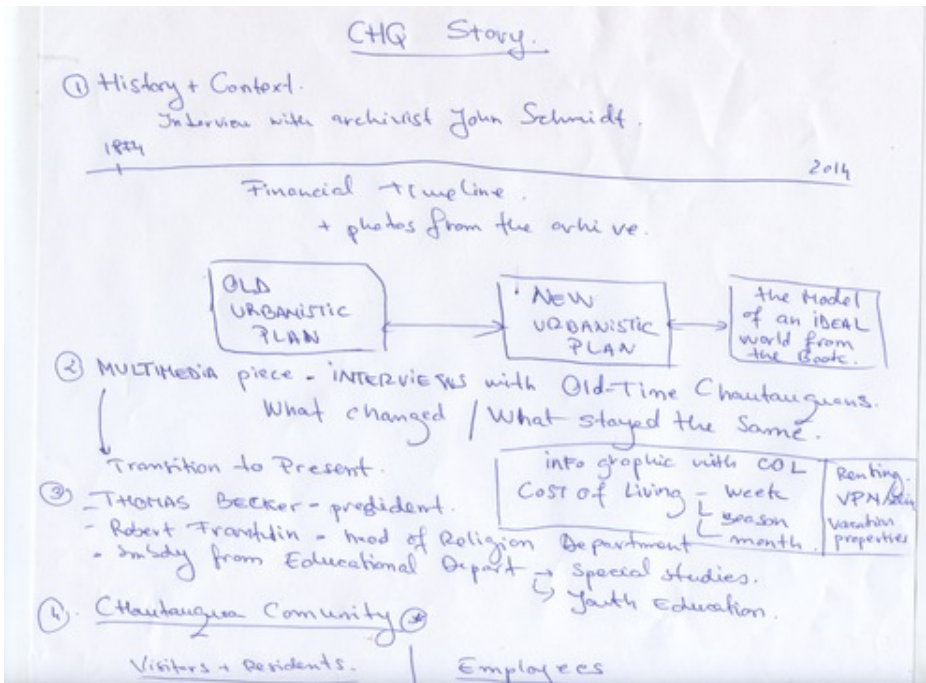 CHQ Story.
① History + Context.
Interview with archivist John Schmidt.
1874
2014
Financial timeline.
+ photos from the arhive.
OLD
URBANISTIC
PLAN
NEW
URBANISTIC
PLAN
the Model
of an iDEAL
world from
the Book.
② MULTIMEDIA piece - iNTERVIEWS with Old-Time Chautauquans.
What changed / What stayed the Same.
Transition to Present.
info graphic with COL
COST of Living - week
season
month.
Renting.
vacation
properties
③ - THOMAS BECKER - president.
- Robert Franklin - head of Religion Department
- Smbdy from Educational Depart → Special studies.
Youth Education.
④. CHautauqua Comunity
Visitors + Residents.
Employees